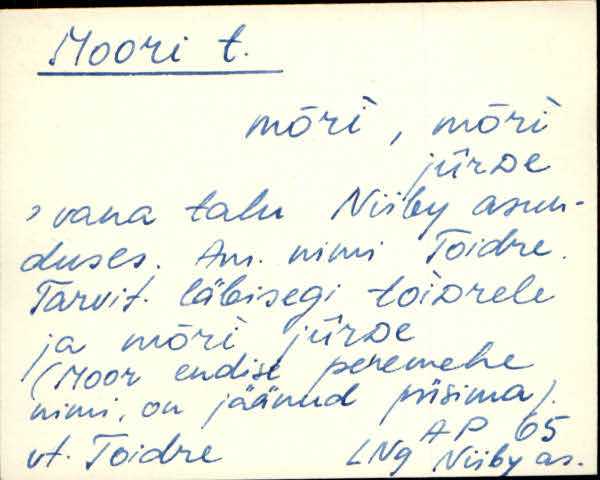 Moori t.
mōri̮, mōri̮
jūrᴅe
, vana talu Niiby asun-
duses. Am. nimi Toidre.
Tarvit. läbisegi toiᴅrele
ja mōri̮ jūrᴅe
(Moor endise peremehe
nimi, on jäänud püsima).
AP 65
vt. Toidre LNg Niiby as.